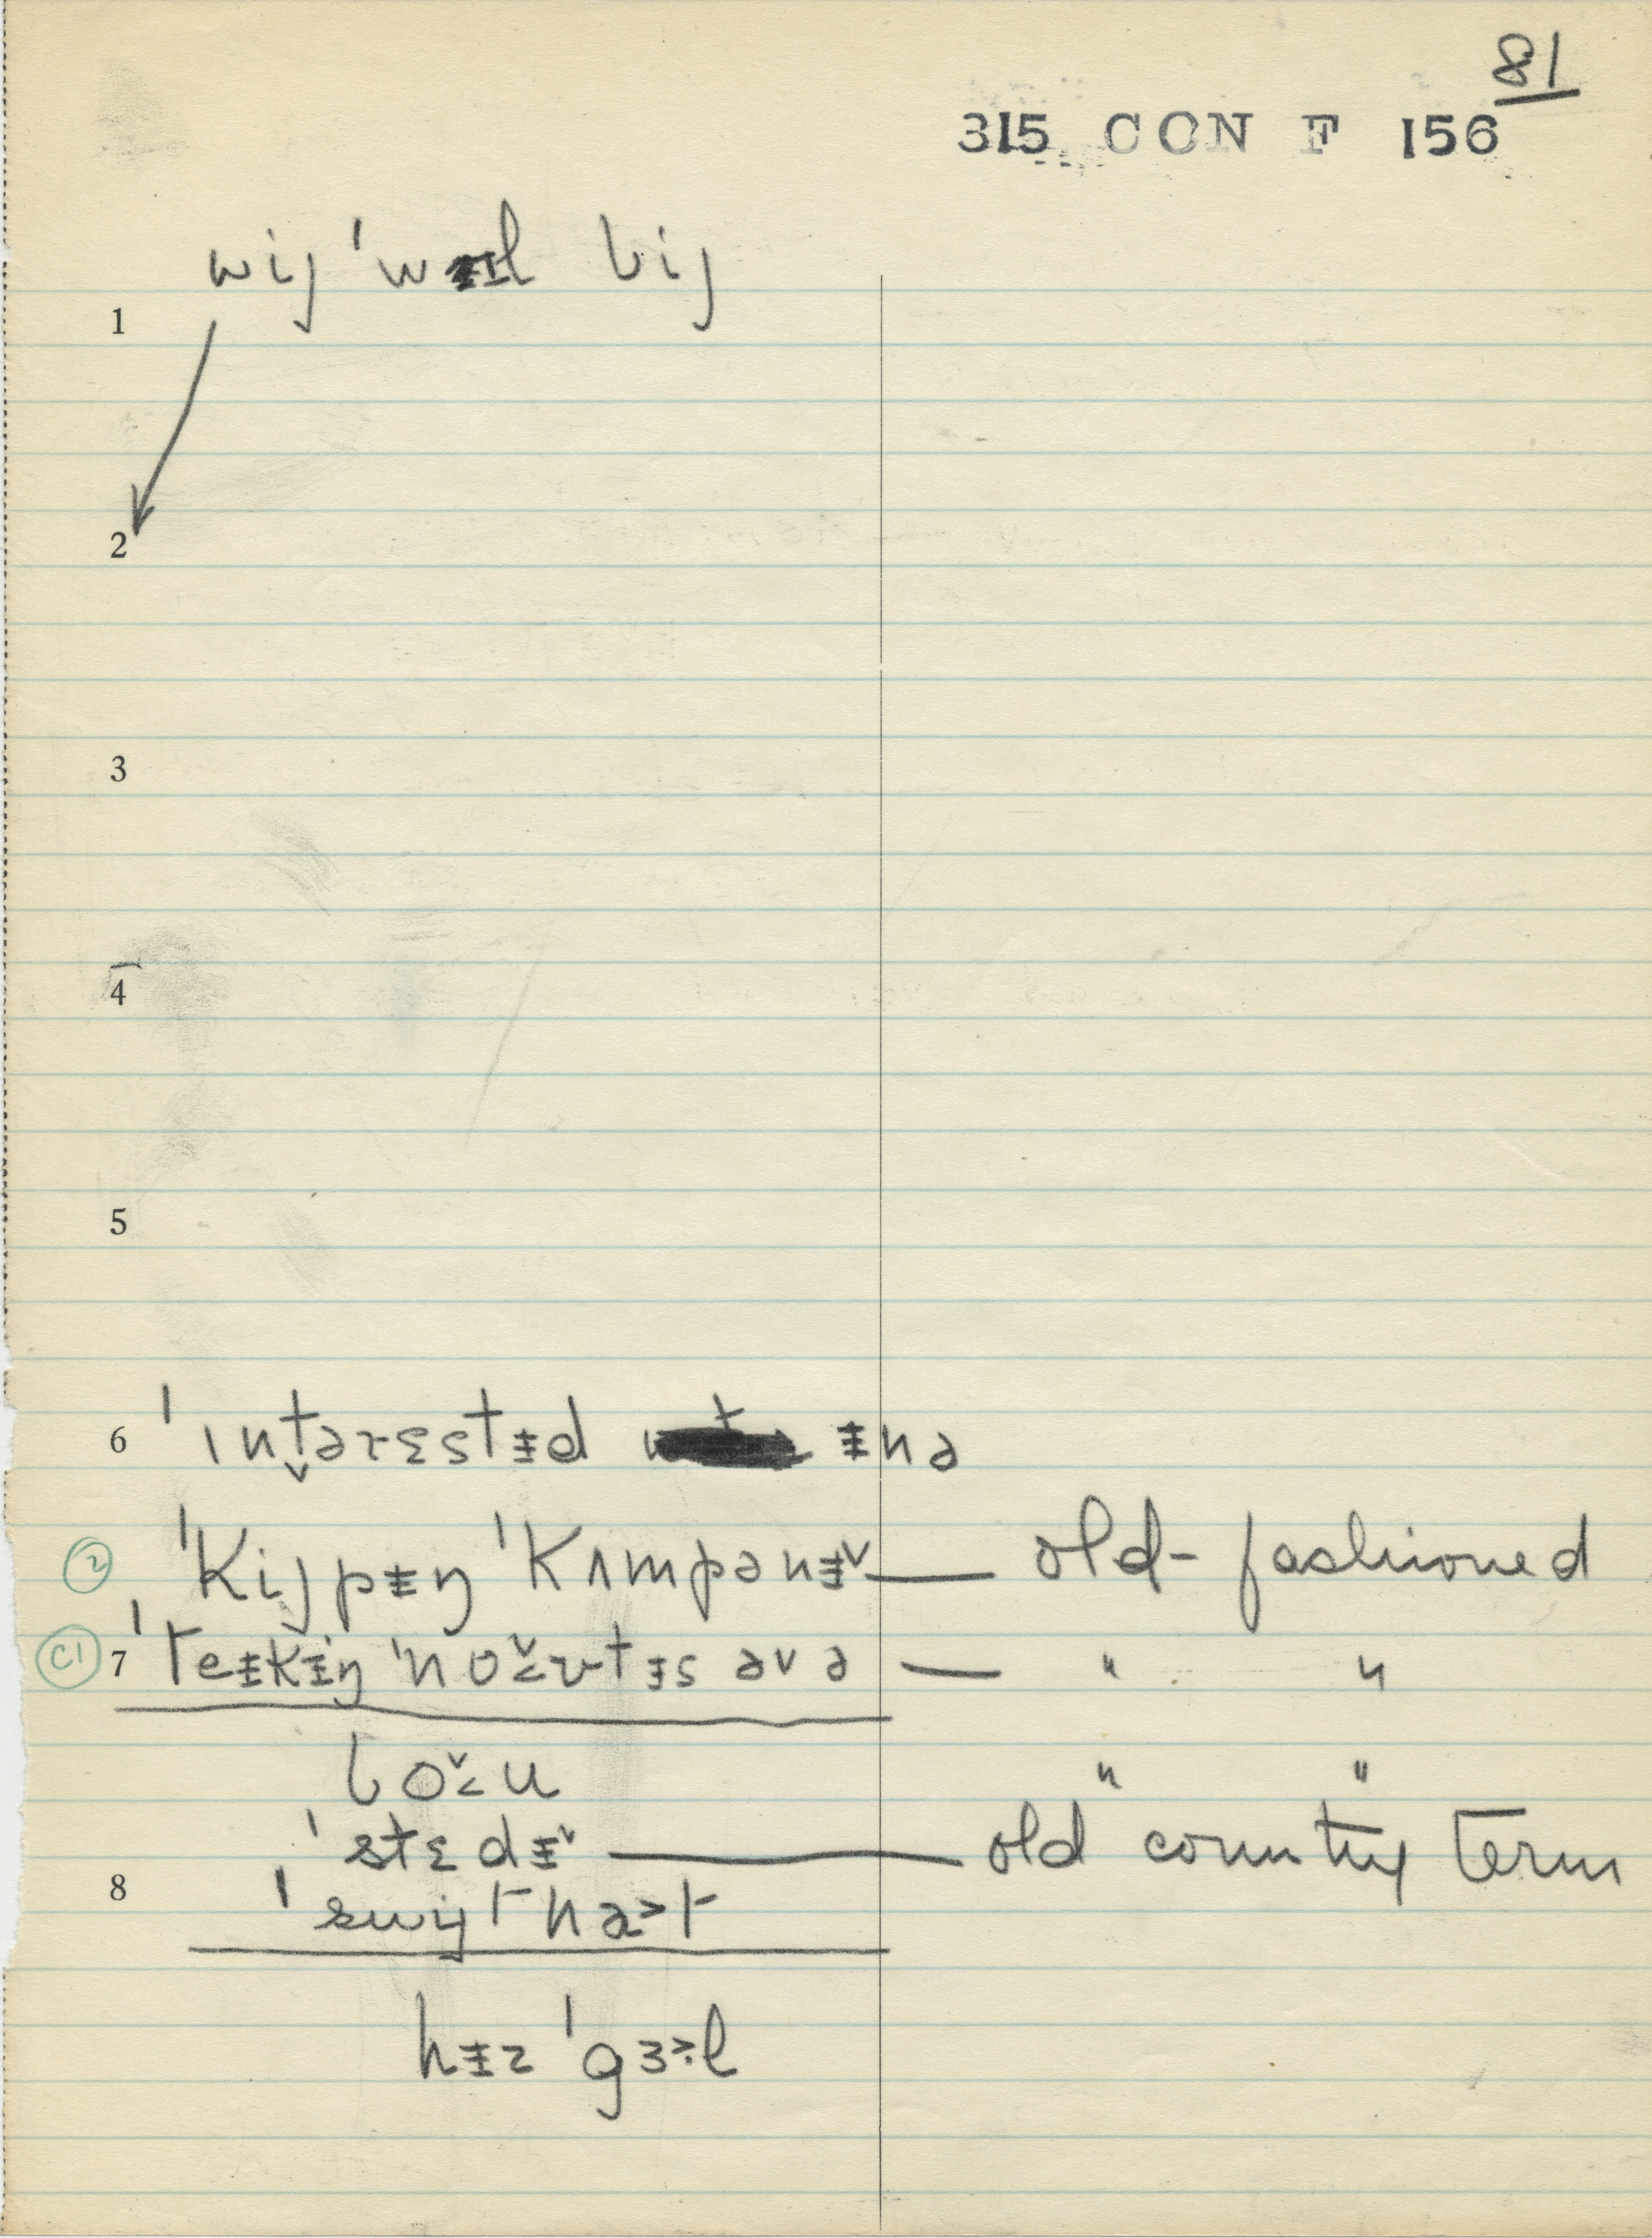 81
315 CON F 156
wij ˈwɨl bij
1
2
3
4
5
6 ˈɪntərɛstɨd ɨnə
② ˈkijpɨŋ ˈkʌmpənɨ˅ — old-fashioned
C1 7 ˈteɨkɨŋ ˈno˅˂ʊtɨs əvə — " "
bo˅˂u " "
ˈstɛdɨ˅ — old country term
8 ˈswijthɑ˃t
hɨz ˈgɜ˃·l